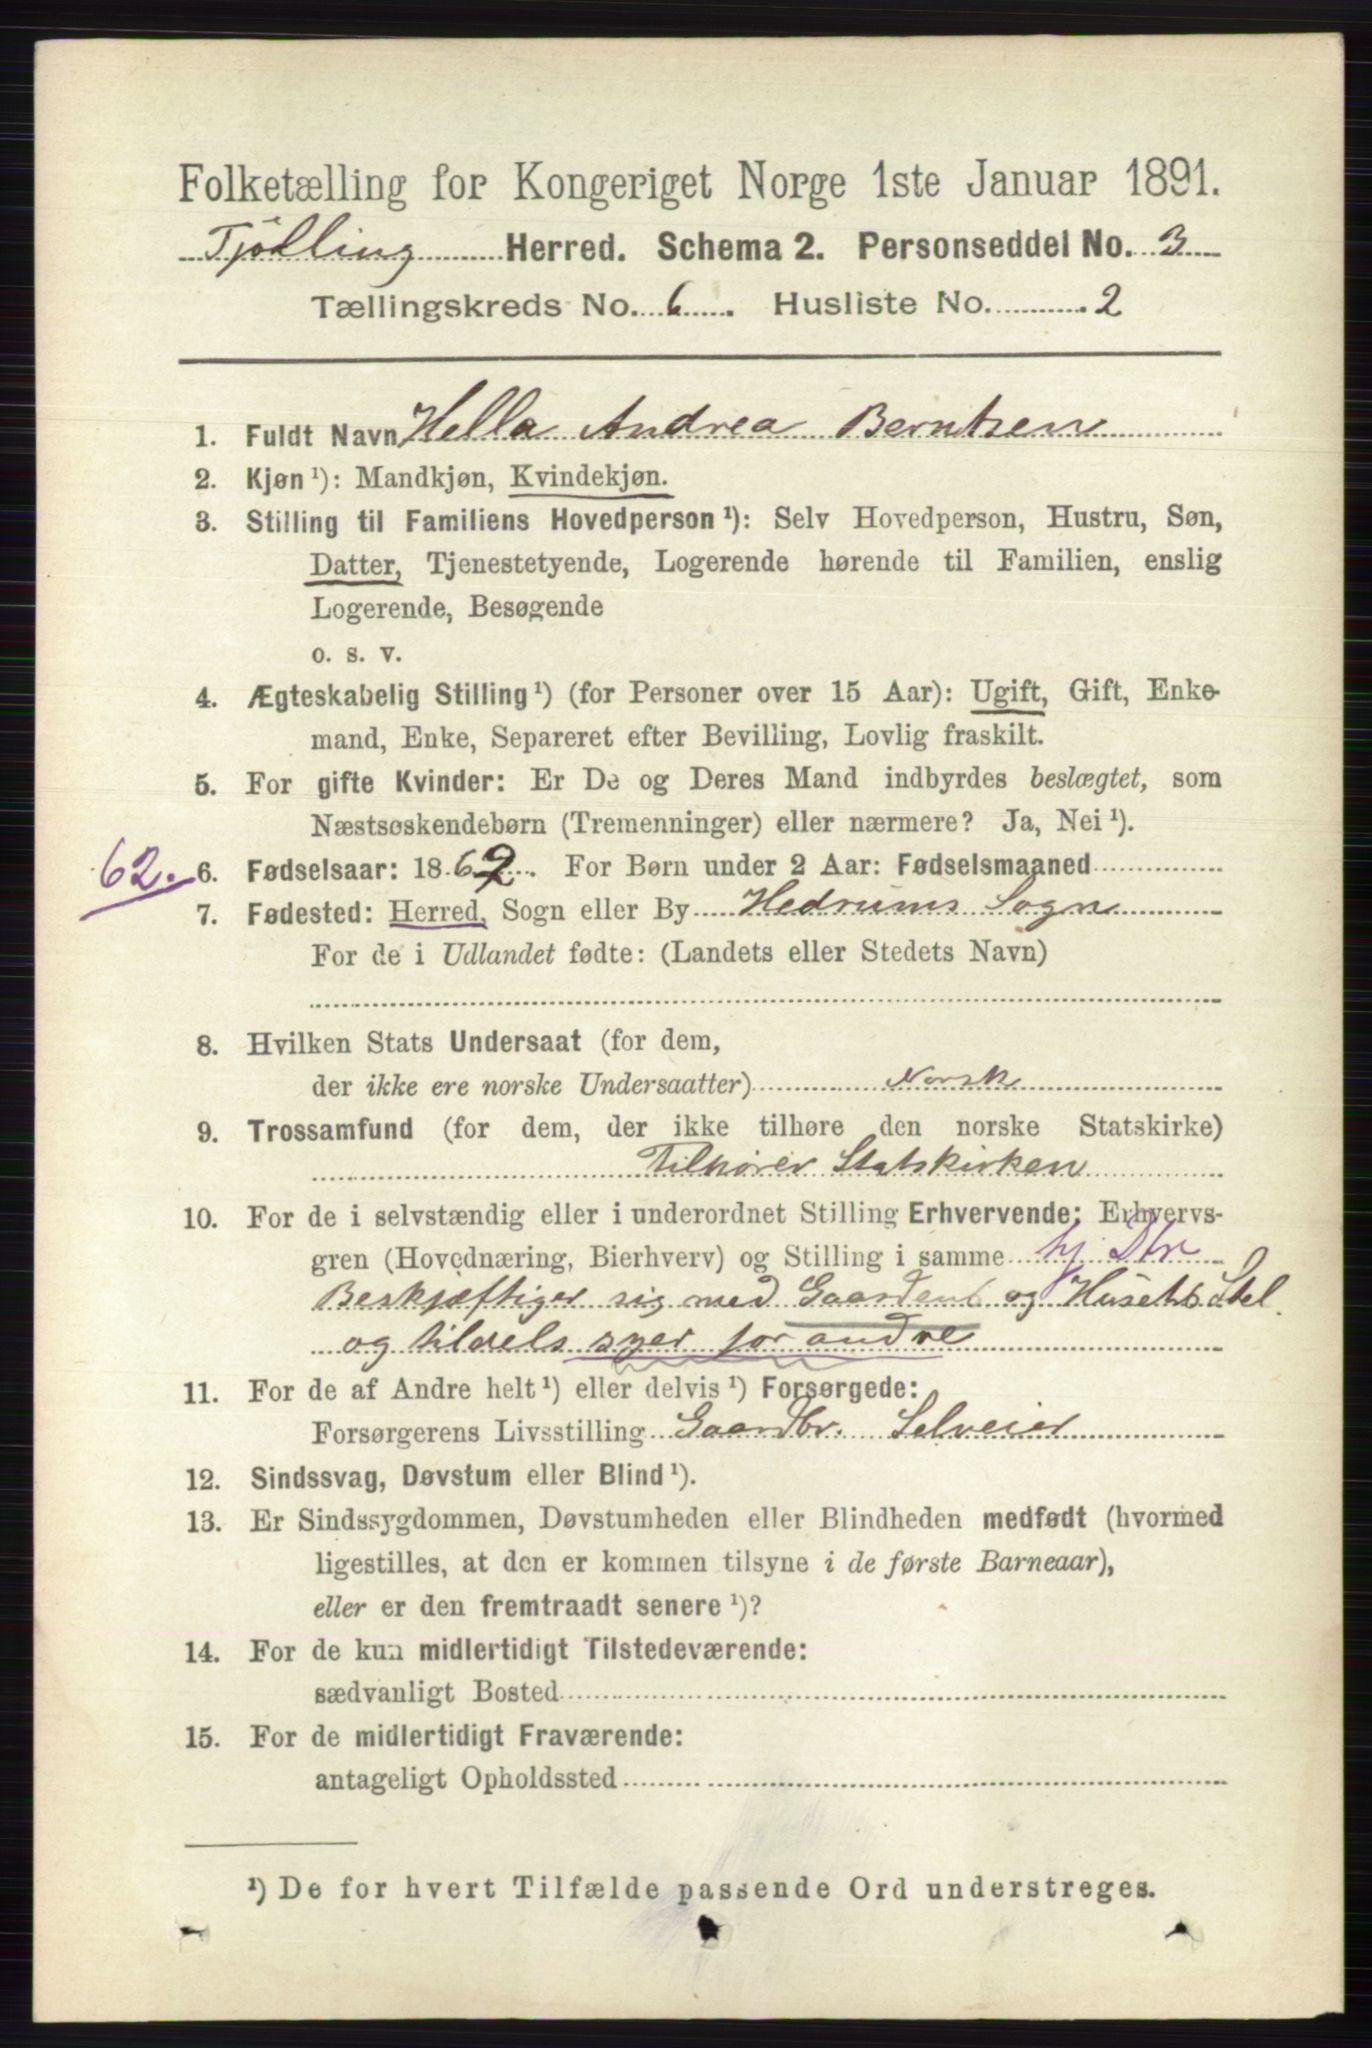 Folketælling for Kongeriget Norge 1ste Januar 1891.
Tjølling Herred. Schema 2. Personseddel No. 3
Tællingskreds No. 6. Husliste No. 2
1. Fuldt Navn Hella Andrea Berntsen
2. Kjøn ¹): Mandkjøn, Kvindekjøn.
3. Stilling til Familiens Hovedperson ¹): Selv Hovedperson, Hustru, Søn,
Datter, Tjenestetyende, Logerende hørende til Familien, enslig
Logerende, Besøgende
o. s. v.
4. Ægteskabelig Stilling ¹) (for Personer over 15 Aar): Ugift, Gift, Enke-
mand, Enke, Separeret efter Bevilling, Lovlig fraskilt.
5. For gifte Kvinder: Er De og Deres Mand indbyrdes beslægtet, som
Næstsøskendebørn (Tremenninger) eller nærmere? Ja, Nei ¹).
62. 6. Fødselsaar: 1862. For Børn under 2 Aar: Fødselsmaaned
7. Fødested: Herred, Sogn eller By Hedrums Sogn
For de i Udlandet fødte: (Landets eller Stedets Navn)
8. Hvilken Stats Undersaat (for dem,
der ikke ere norske Undersaatter) Norsk
9. Trossamfund (for dem, der ikke tilhøre den norske Statskirke)
Tilhører Statskirken
10. For de i selvstændig eller i underordnet Stilling Erhvervende: Erhvervs-
gren (Hovednæring, Bierhverv) og Stilling i samme hj. Dtr
Beskjæftiger sig med Gaardens og Husets Stel
og tildels syer for andre
11. For de af Andre helt ¹) eller delvis ¹) Forsørgede:
Forsørgerens Livsstilling Gaardbr. Selveier
12. Sindssvag, Døvstum eller Blind ¹).
13. Er Sindssygdommen, Døvstumheden eller Blindheden medfødt (hvormed
ligestilles, at den er kommen tilsyne i de første Barneaar),
eller er den fremtraadt senere ¹)?
14. For de kun midlertidigt Tilstedeværende:
sædvanligt Bosted
15. For de midlertidigt Fraværende:
antageligt Opholdssted
¹) De for hvert Tilfælde passende Ord understreges.